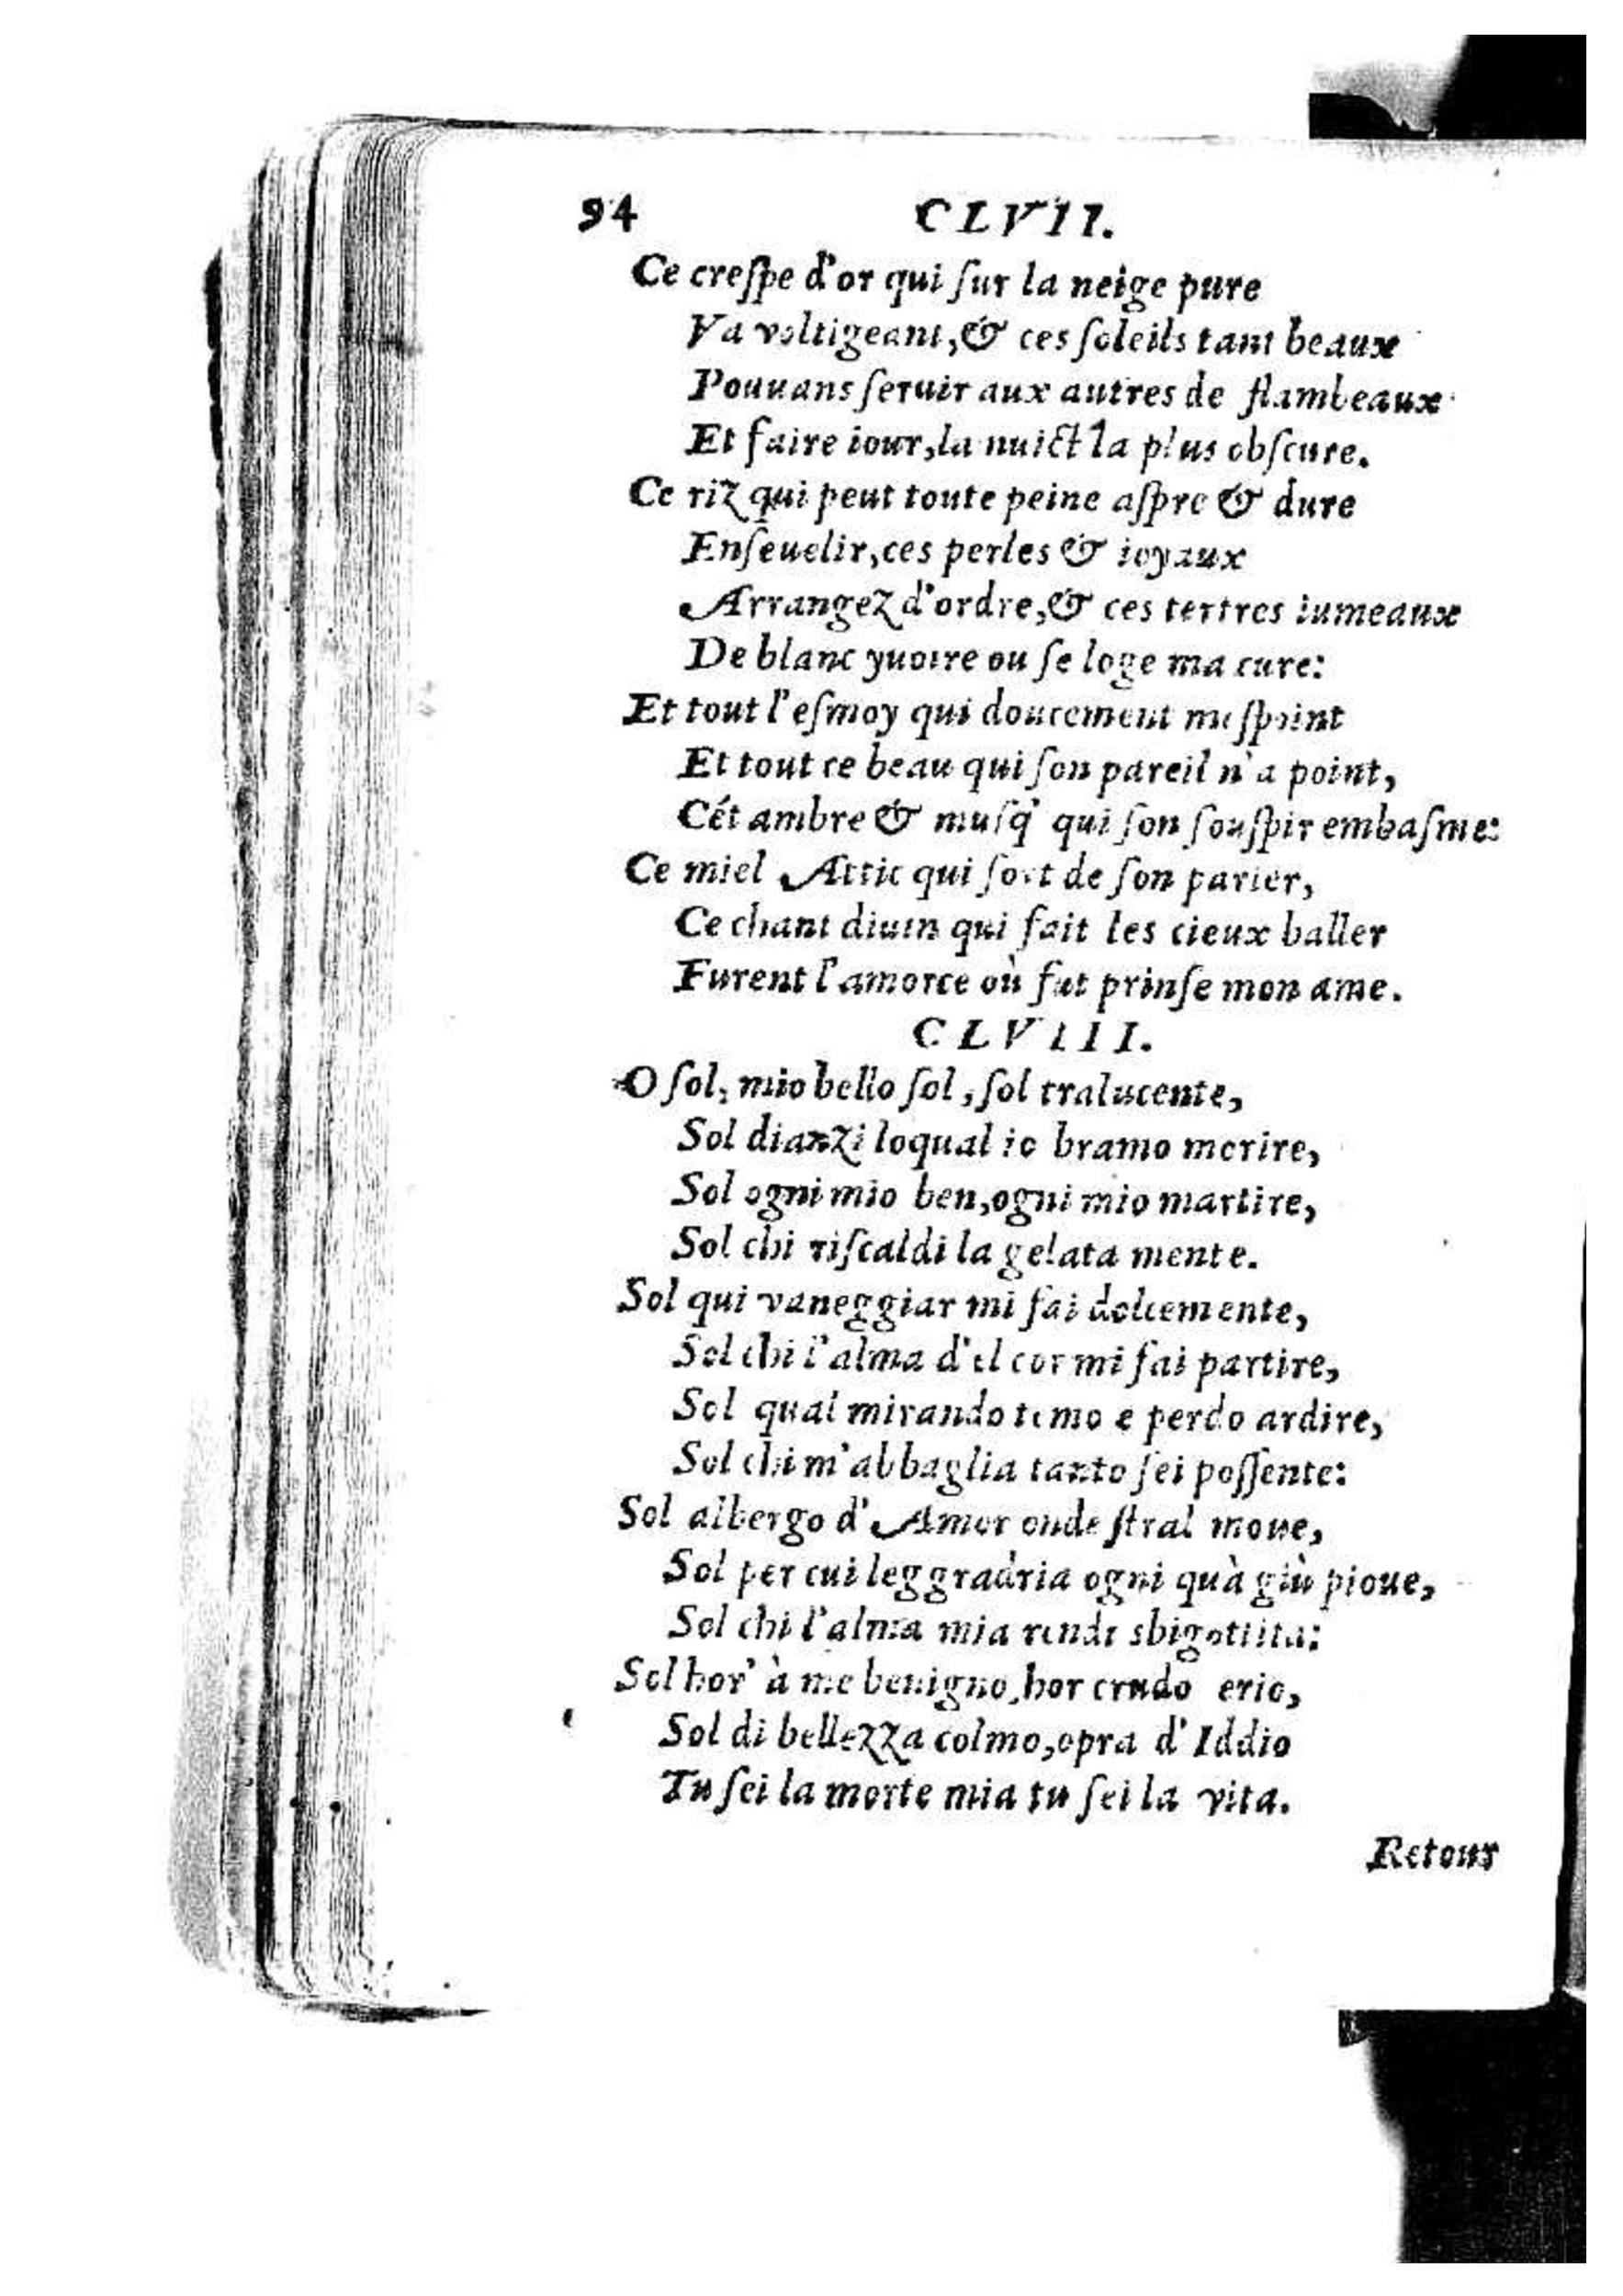 94 CLVII.
Ce creſpe d'or qui ſur la neige pure
Va voltigeant, & ces ſoleils tant beaux
Pouuans ſeruir aux autres de flambeaux
Et faire iour, la nuict la plus obſcure.
Ce riz qui peut toute peine aſpre & dure
Enſeuelir, ces perles & ioyaux
Arrangez d'ordre, & ces tertres iumeaux
De blanc yuoire ou ſe loge ma cure:
Et tout l'eſmoy qui doucement me ſpoint
Et tout ce beau qui ſon pareil n'a point,
Cét ambre & muſq' qui ſon ſouſpir embaſme:
Ce miel Attic qui ſort de ſon parler,
Ce chant diuin qui fait les cieux baller
Furent l'amorce où fut prinſe mon ame.
CLVIII.
O ſol, mio bello ſol, ſol tralucente,
Sol dianzi loqual io bramo morire,
Sol ogni mio ben, ogni mio martire,
Sol chi riſcaldi la gelata mente.
Sol qui vaneggiar mi fai dolcemente,
Sol chi l'alma d'el cor mi fai partire,
Sol qual mirando temo e perdo ardire,
Sol chi m'abbaglia tanto ſei poſſente:
Sol albergo d'Amor onde ſtral moue,
Sol per cui leggradria ogni quà giù pioue,
Sol chi l'alma mia rende sbigottita:
Sol hor' à me benigno, hor crudo erio,
Sol di bellezza colmo, opra d'Iddio
Tu ſei la morte mia tu ſei la vita.
Retour